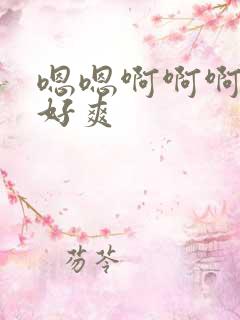 嗯嗯啊啊啊
好爽
芴苓